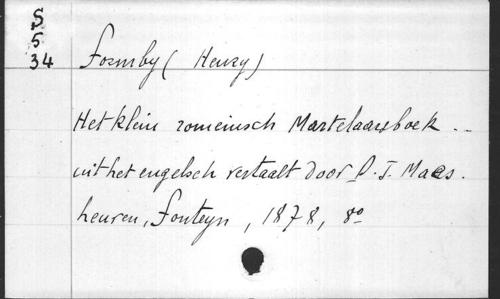 S
5
34
Formby ( Henry )
Het klein romeinsch Martelaarsboek ..
uit het engelsch vertaalt door P. J. Maes.
heuren, Fonteyn, 1878, 8o